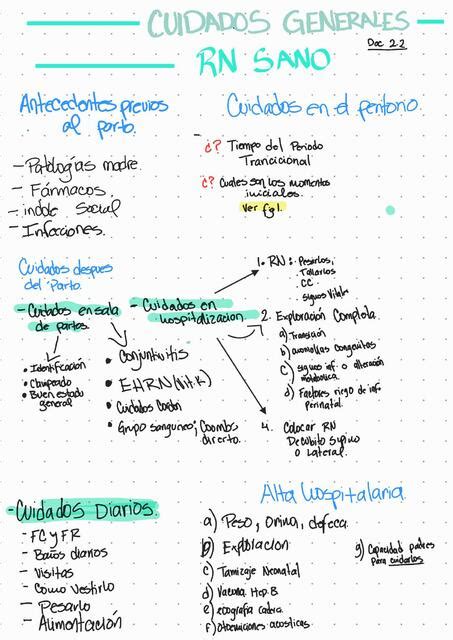 CUIDADOS GENERALES
Doc 2.2
RN SANO
Antecedentes previos
al parto.
- Patologías madre.
- Fármacos.
- indole Social
- Infecciones.
Cuidados en el peritorio.
¿? Tiempo del Periodo
Trancicional
¿? Cuales son los momentos
iniciales.
Ver fig 1.
Cuidados despues
del Parto.
- Cuidados en sala
de partos.
• Identificación
• Chupeado
• Buen estado
general
• Conjuntivitis
• EHRN (Vit. K)
• Cuidados Cordon
• Grupo sanguineo; Coombs
directo.
- Cuidados en
hospitalizacion
1. RN: • Pesarlos,
Tallarlos
CC
signos Vitales
2. Exploración Completa.
a) Transición
b) anomalías congenitas
c) signos inf. o alteración
metabolica.
d) Factores riego de inf.
Perinatal.
4. Colocar RN
Decubito supino
o Lateral.
- Cuidados Diarios.
- FC y FR
- Baños diarios
- Visitas
- Como vestirlo
- Pesarlo
- Alimentación
Alta Hospitalaria.
a) Peso, Orina, defeca.
b) Exploracion
c) Tamizaje Neonatal
d) Vacuna Hep. B
e) ecografia cadera.
f) Otoemiciones acosticas.
g) Capacidad padres
para cuidarlos